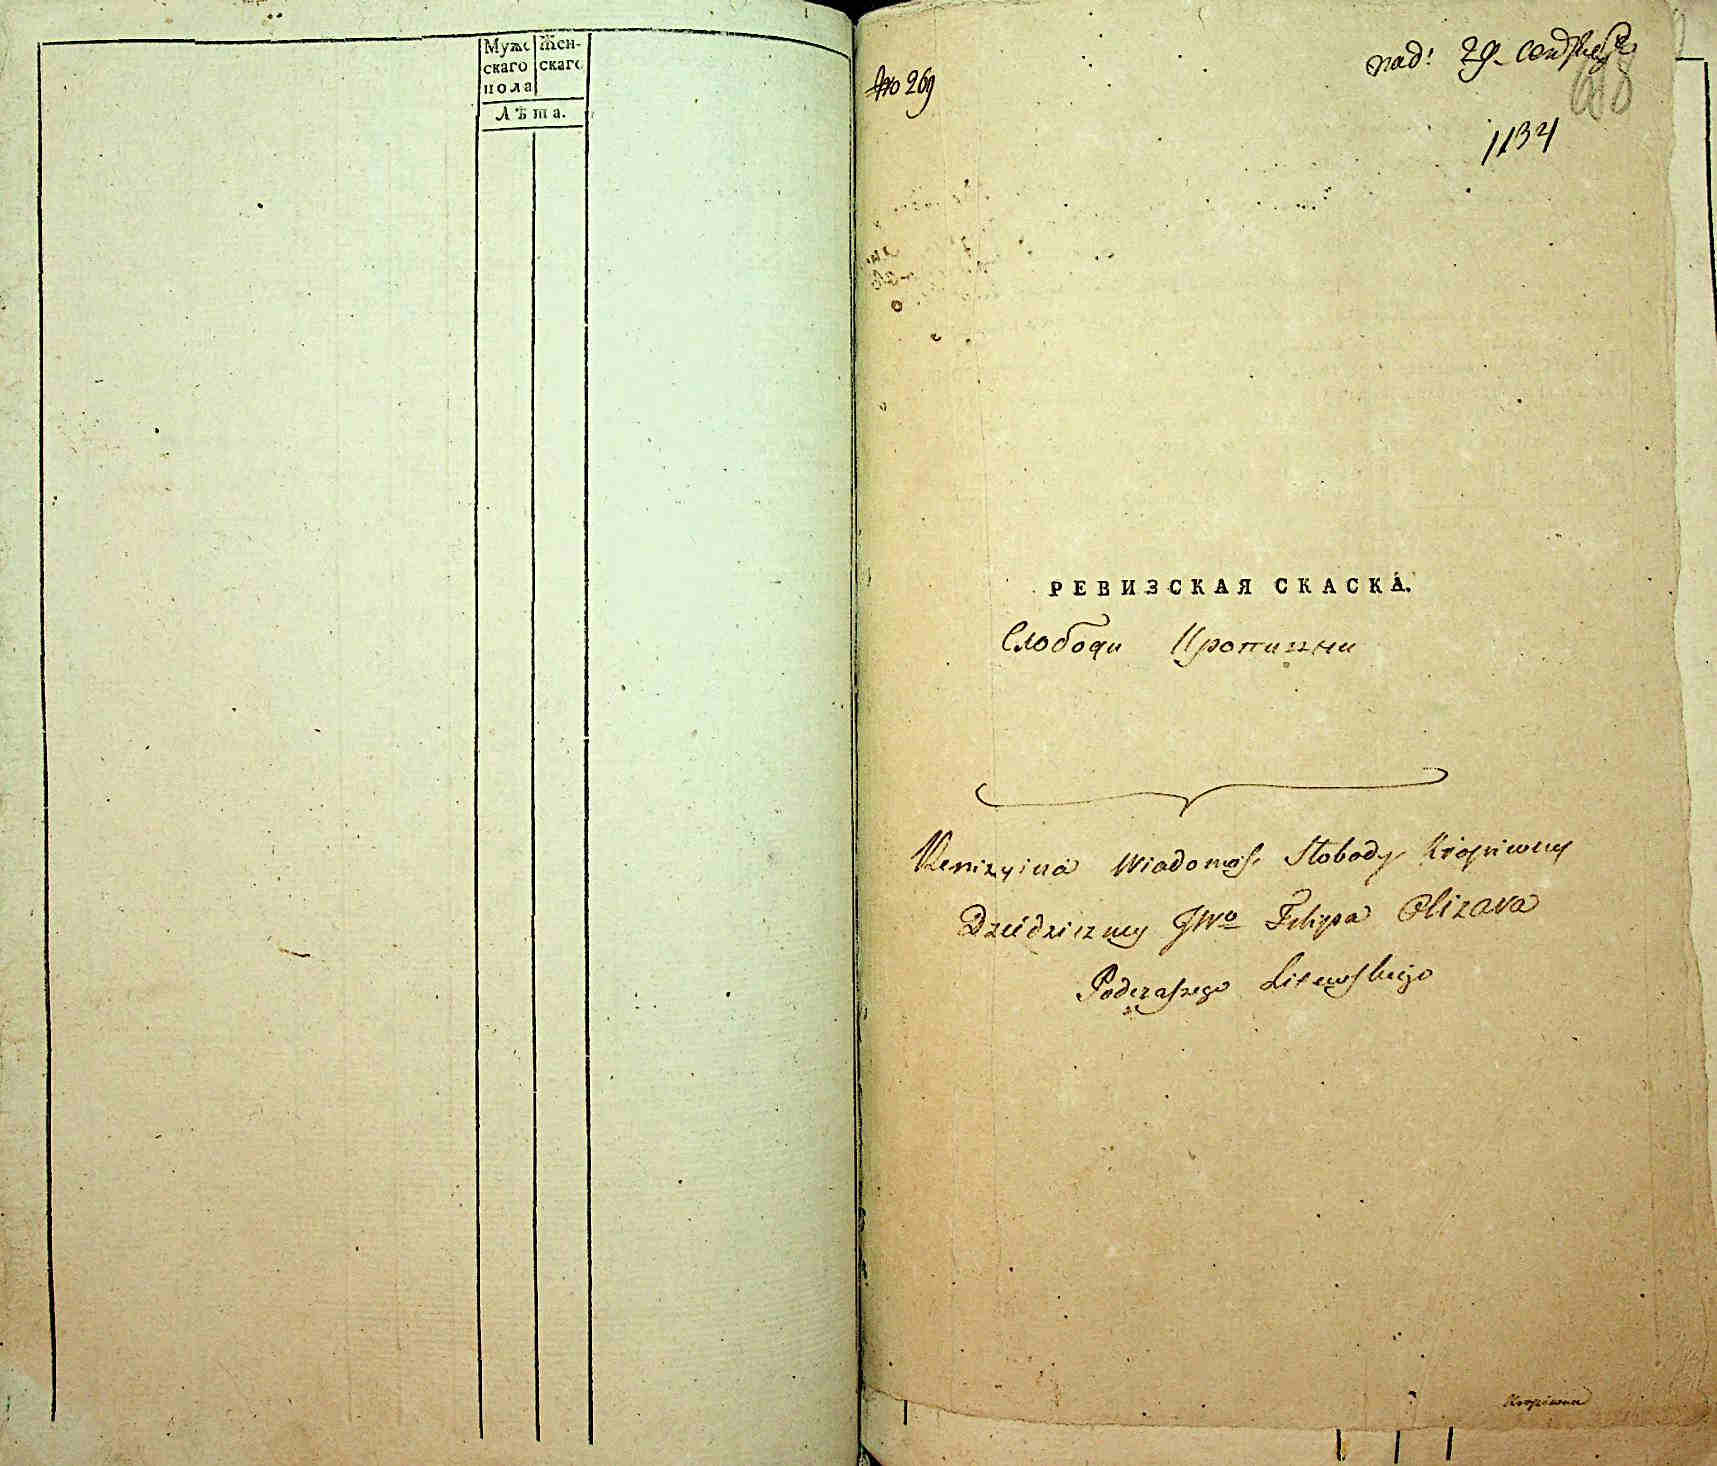 Мужс
скаго
пола
Жен-
скаго
Лѣта.
№ 269
пад: 29 сентября
618
1134
РЕВИЗСКАЯ СКАСКА.
Слободи Кропивни
Rewizyina Wiadomość Słobody Kropiwny
Dziedziczney JWo Filipa Olizara
Podczaszego Litewskiego
Kropiwna